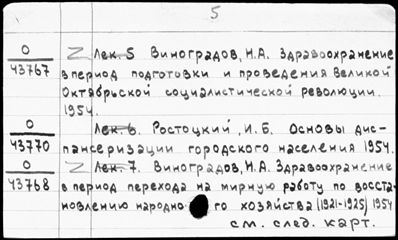 5
0 Z Лек. 5 Виноградов, Н.А. Здравоохранение
43767 в период подготовки и проведения Великой
Октябрьской социалистической революции.
1954.
0 Лек. 6. Ростоцкий, И.Б. Основы дис-
43770 пансеризации городского населения 1954.
0 Z Лек. 7. Виноградов, Н.А. Здравоохранение
43768 в период перехода на мирную работу по восста-
новлению народно го хозяйства (1921-1925) 1954
см. след. карт.